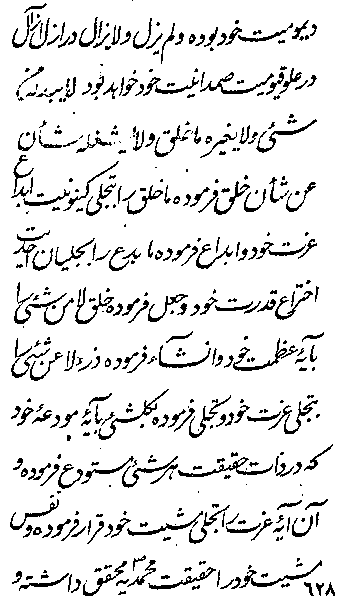 دیمومیت خود بوده و لم یزل و لا یزال در ازل آلازال
در علو قیومیت صمدانیت خود خواهد بود لا یبدله من
شئ و لا یغیره ما خلق و لا یشغله شأن
عن شأن خلق فرموده ما خلق را بتجلی کینونیت ابداع
عزت خود و ابداع فرموده ما بدع را بتجلیان احدیت
اختراع قدرت خود و جعل فرموده خلق لا من شئ را
بآیهٔ عظمت خود و انشاء فرموده ذرء لا عن شئ را
بتجلی عزت خود و تجلی فرموده بکلشئ بآیهٔ مودعهٔ خود
که در ذات حقیقت هر شئ مستودع فرموده و
آن آیهٔ عزت را تجلی مشیت خود قرار فرموده و نفس
مشیت خود را حقیقت محمدیه ص محقق داشته و
۶۲۸